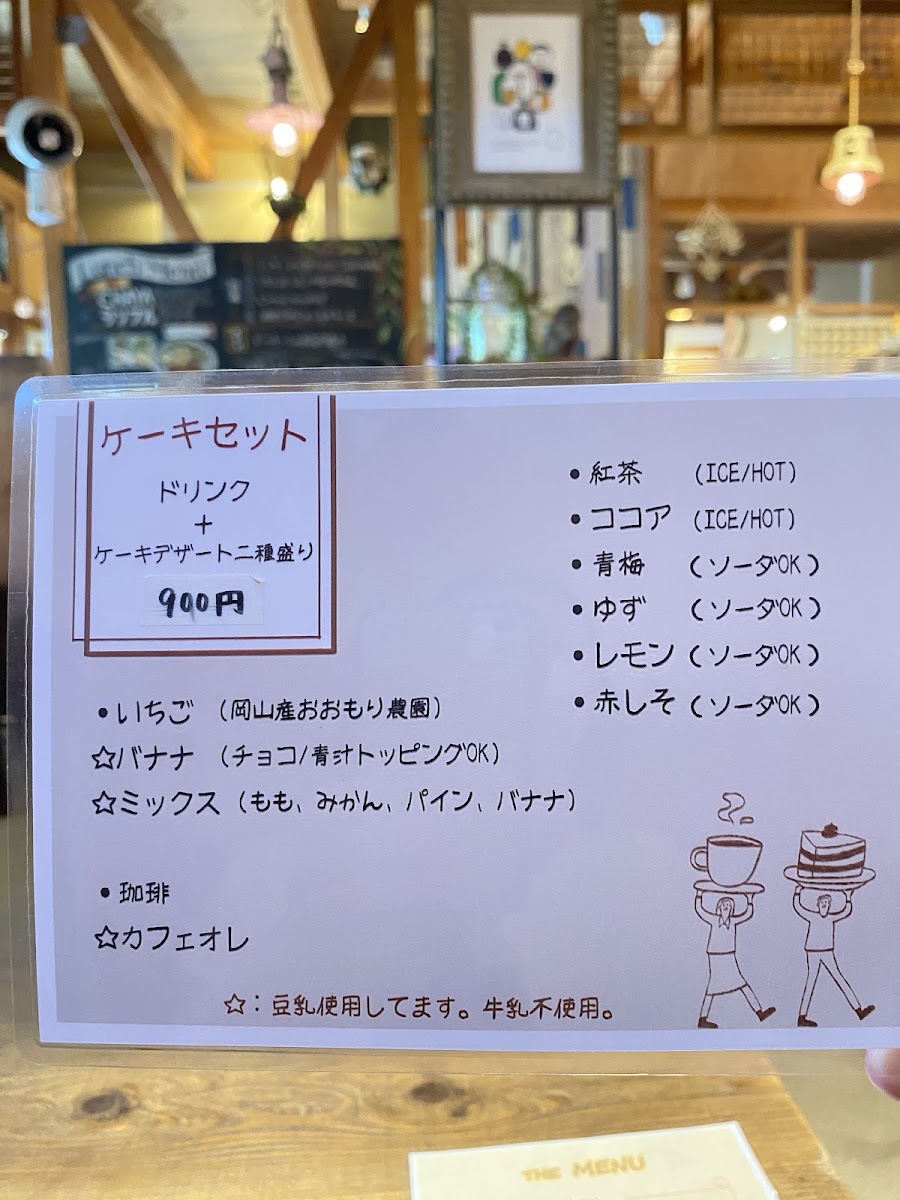 ケーキセット
ドリンク
+
ケーキデザート二種盛り
900円
• いちご (岡山産おおもり農園)
☆バナナ (チョコ/青汁トッピングOK)
☆ミックス (もも、みかん、パイン、バナナ)
• 珈琲
☆カフェオレ
• 紅茶 (ICE/HOT)
• ココア (ICE/HOT)
• 青梅 (ソーダOK)
• ゆず (ソーダOK)
• レモン (ソーダOK)
• 赤しそ (ソーダOK)
☆：豆乳使用してます。牛乳不使用。
THE MENU